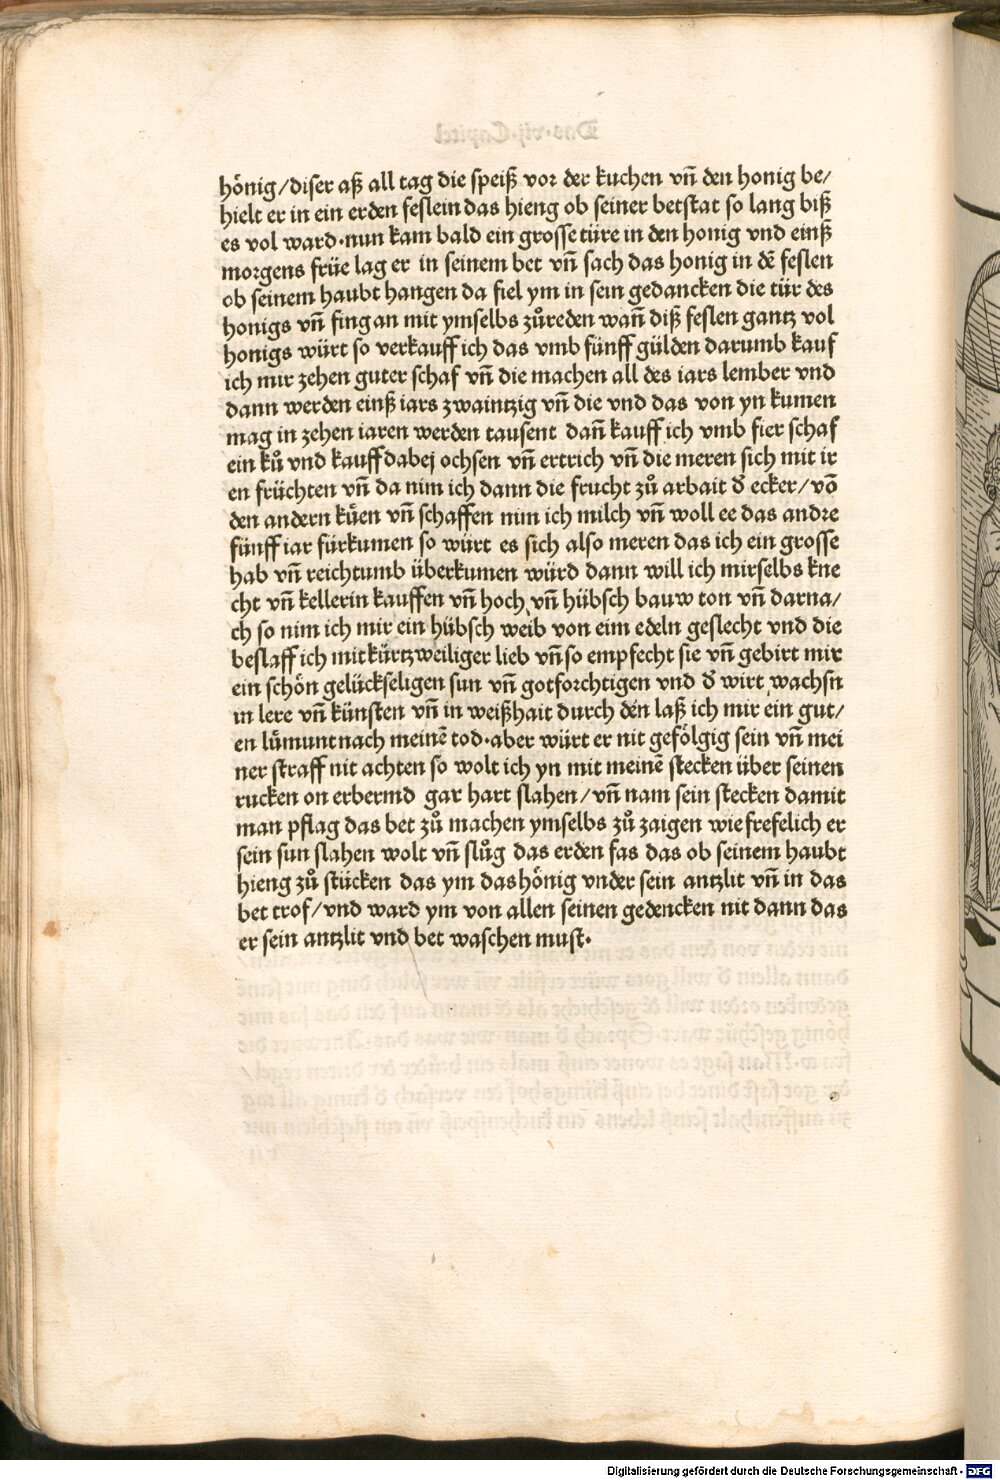 hönig/diser aß all tag die speiß vor der kuchen vñ den honig be/
hielt er in ein erden feslein das hieng ob seiner betstat so lang biß
es vol ward·nun kam bald ein grosse türe in den honig vnd einß
morgens früe lag er in seinem bet vñ sach das honig in dē feslen
ob seinem haubt hangen da fiel ym in sein gedancken die tür des
honigs vñ fing an mit ymselbs zůreden wañ diß feslen gantz vol
honigs würt so verkauff ich das vmb fünff gülden darumb kauf
ich mir zehen guter schaf vñ die machen all des iars lember vnd
dann werden einß iars zwaintzig vñ die vnd das von yn kumen
mag in zehen iaren werden tausent dañ kauff ich vmb fier schaf
ein ků vnd kauff dabej ochsen vñ ertrich vñ die meren sich mit ir
en früchten vñ da nim ich dann die frucht zů arbait d̄ ecker/võ
den andern küen vñ schaffen nim ich milch vñ woll ee das andre
fünff iar fürkumen so würt es sich also meren das ich ein grosse
hab vñ reichtumb überkumen würd dann will ich mirselbs kne
cht vñ kellerin kauffen vñ hoch vñ hübsch bauw ton vñ darna/
ch so nim ich mir ein hübsch weib von eim edeln geslecht vnd die
beslaff ich mit kürtzweiliger lieb vñ so empfecht sie vñ gebirt mir
ein schön gelückseligen sun vñ gotforchtigen vnd d̄ wirt wachsn
in lere vñ künsten vñ in weißhait durch den laß ich mir ein gut/
en lümunt nach meinē tod·aber würt er nit gefölgig sein vñ mei
ner straff nit achten so wolt ich yn mit meinē stecken über seinen
rucken on erbermd gar hart slahen/vñ nam sein stecken damit
man pflag das bet zů machen ymselbs zů zaigen wie frefelich er
sein sun slahen wolt vñ slůg das erden fas das ob seinem haubt
hieng zů stücken das ym das hönig vnder sein antzlit vñ in das
bet trof/vnd ward ym von allen seinen gedencken nit dann das
er sein antzlit vnd bet waschen must·
Digitalisierung gefördert durch die Deutsche Forschungsgemeinschaft - DFG